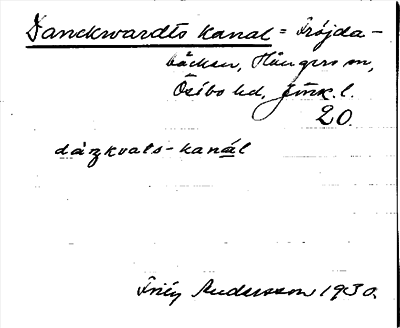 Danckwardts kanal = Fröjda-
bäcken, Hångers sn,
Östbo hd, Jönk. l.
20.
dázkvals-kanál
Andersson 1930.